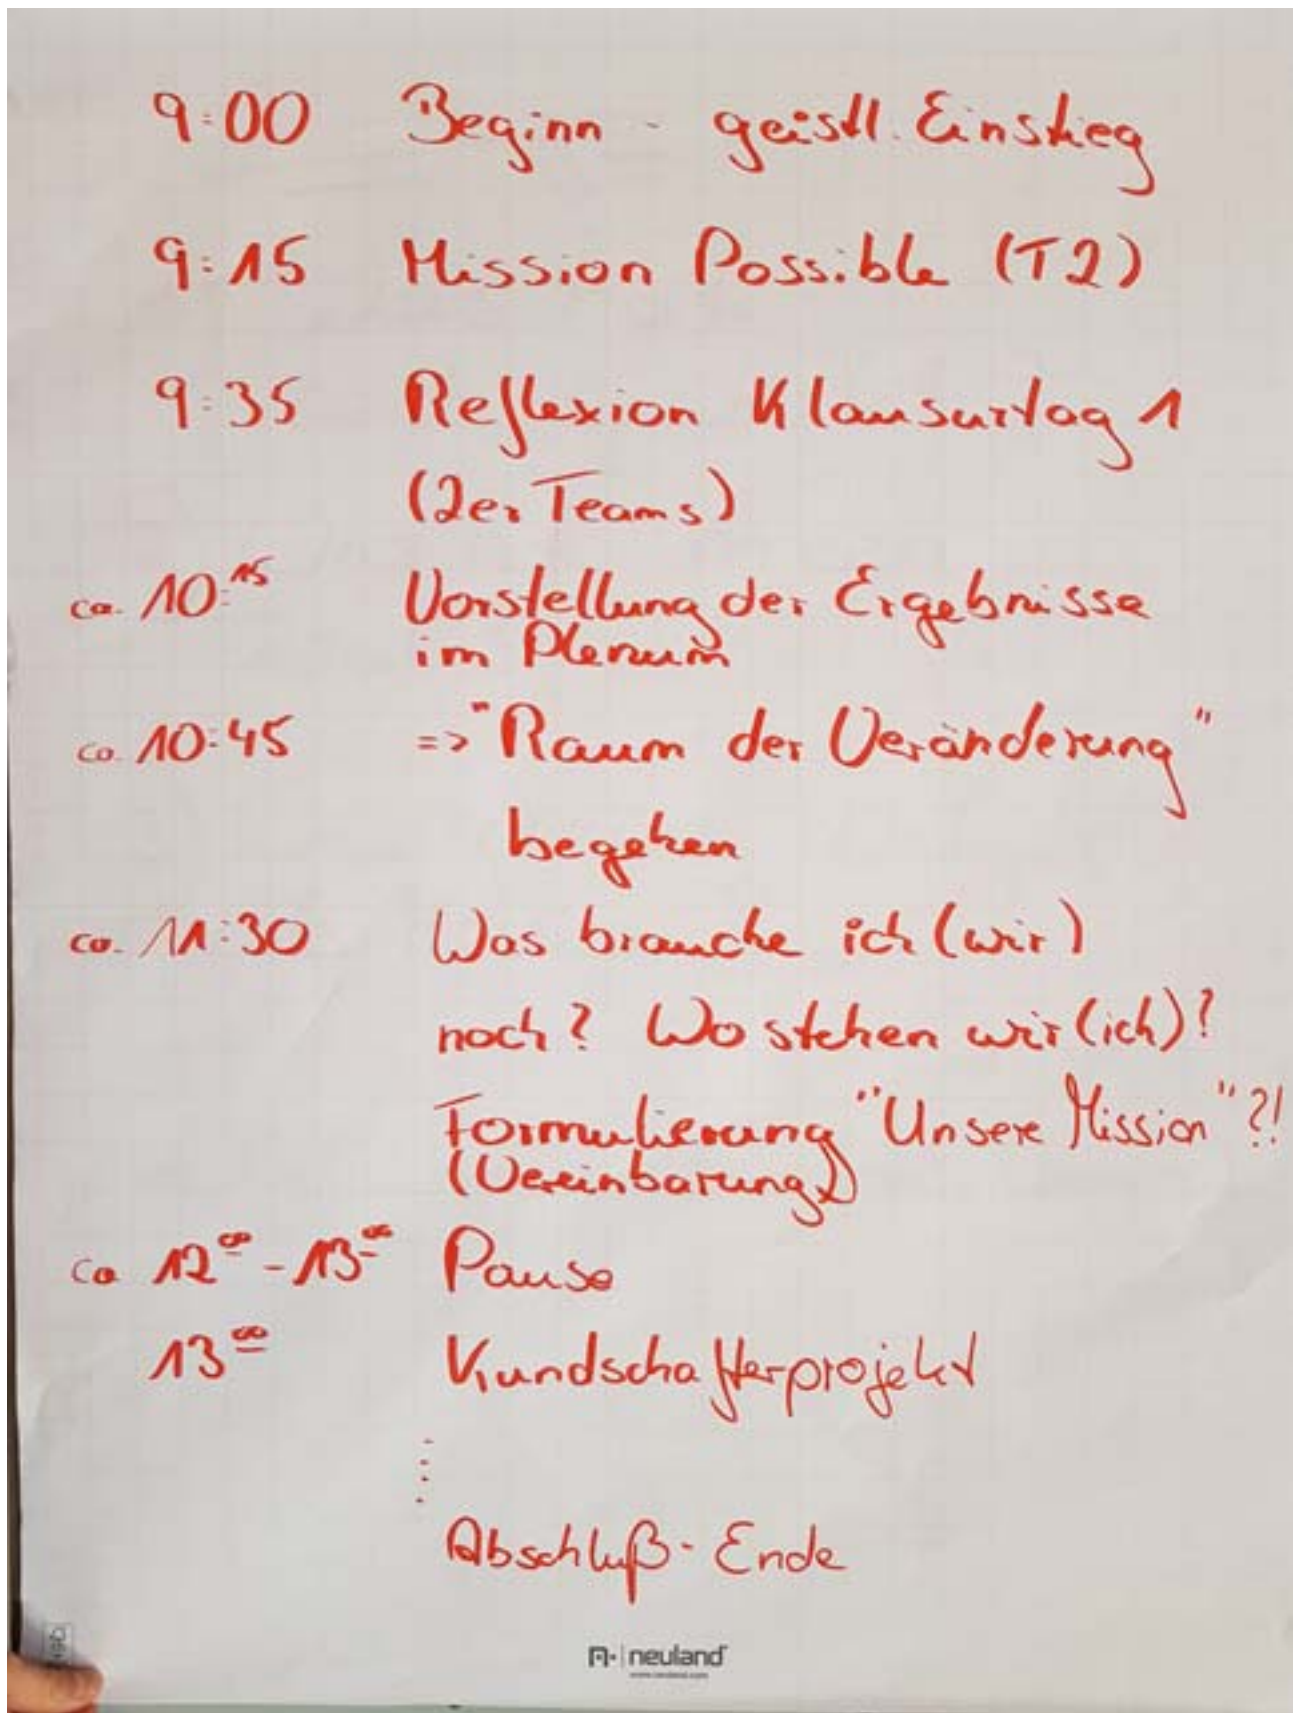 9:00 Beginn - geistl. Einstieg
9:15 Mission Possible (T2)
9:35 Reflexion Klausurtag 1
(2er Teams)
ca. 10:15 Vorstellung der Ergebnisse
im Plenum
ca. 10:45 => "Raum der Veränderung"
begehen
ca. 11:30 Was brauche ich (wir)
noch? Wo stehen wir (ich)?
Formulierung "Unsere Mission"?!
(Vereinbarung)
ca 12°° - 13°° Pause
13°° Kundschafterprojekt
Abschluß - Ende
neuland